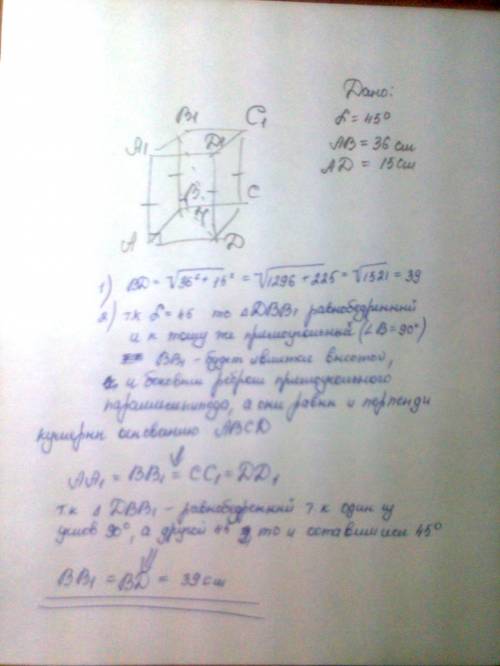 Дано:
α = 45°
AB = 36 см
AD = 15 см
B1
C1
A1
D1
B
C
A
D
1) BD = √36² + 15² = √1296 + 225 = √1521 = 39
2) т.к α = 45 то △DBB1 равнобедренный
и к тому же прямоугольный (∠B = 90°)
BB1 - будет высотой,
и боковым ребром прямоугольного
параллелепипеда, а они равны и перпенди
кулярны основанию ABCD
⇓
AA1 = BB1 = CC1 = DD1
т.к △ DBB1 - равнобедренный т.к один из
углов 90°, а другой 45 то и оставшийся 45°
⇓
BB1 = BD = 39 см